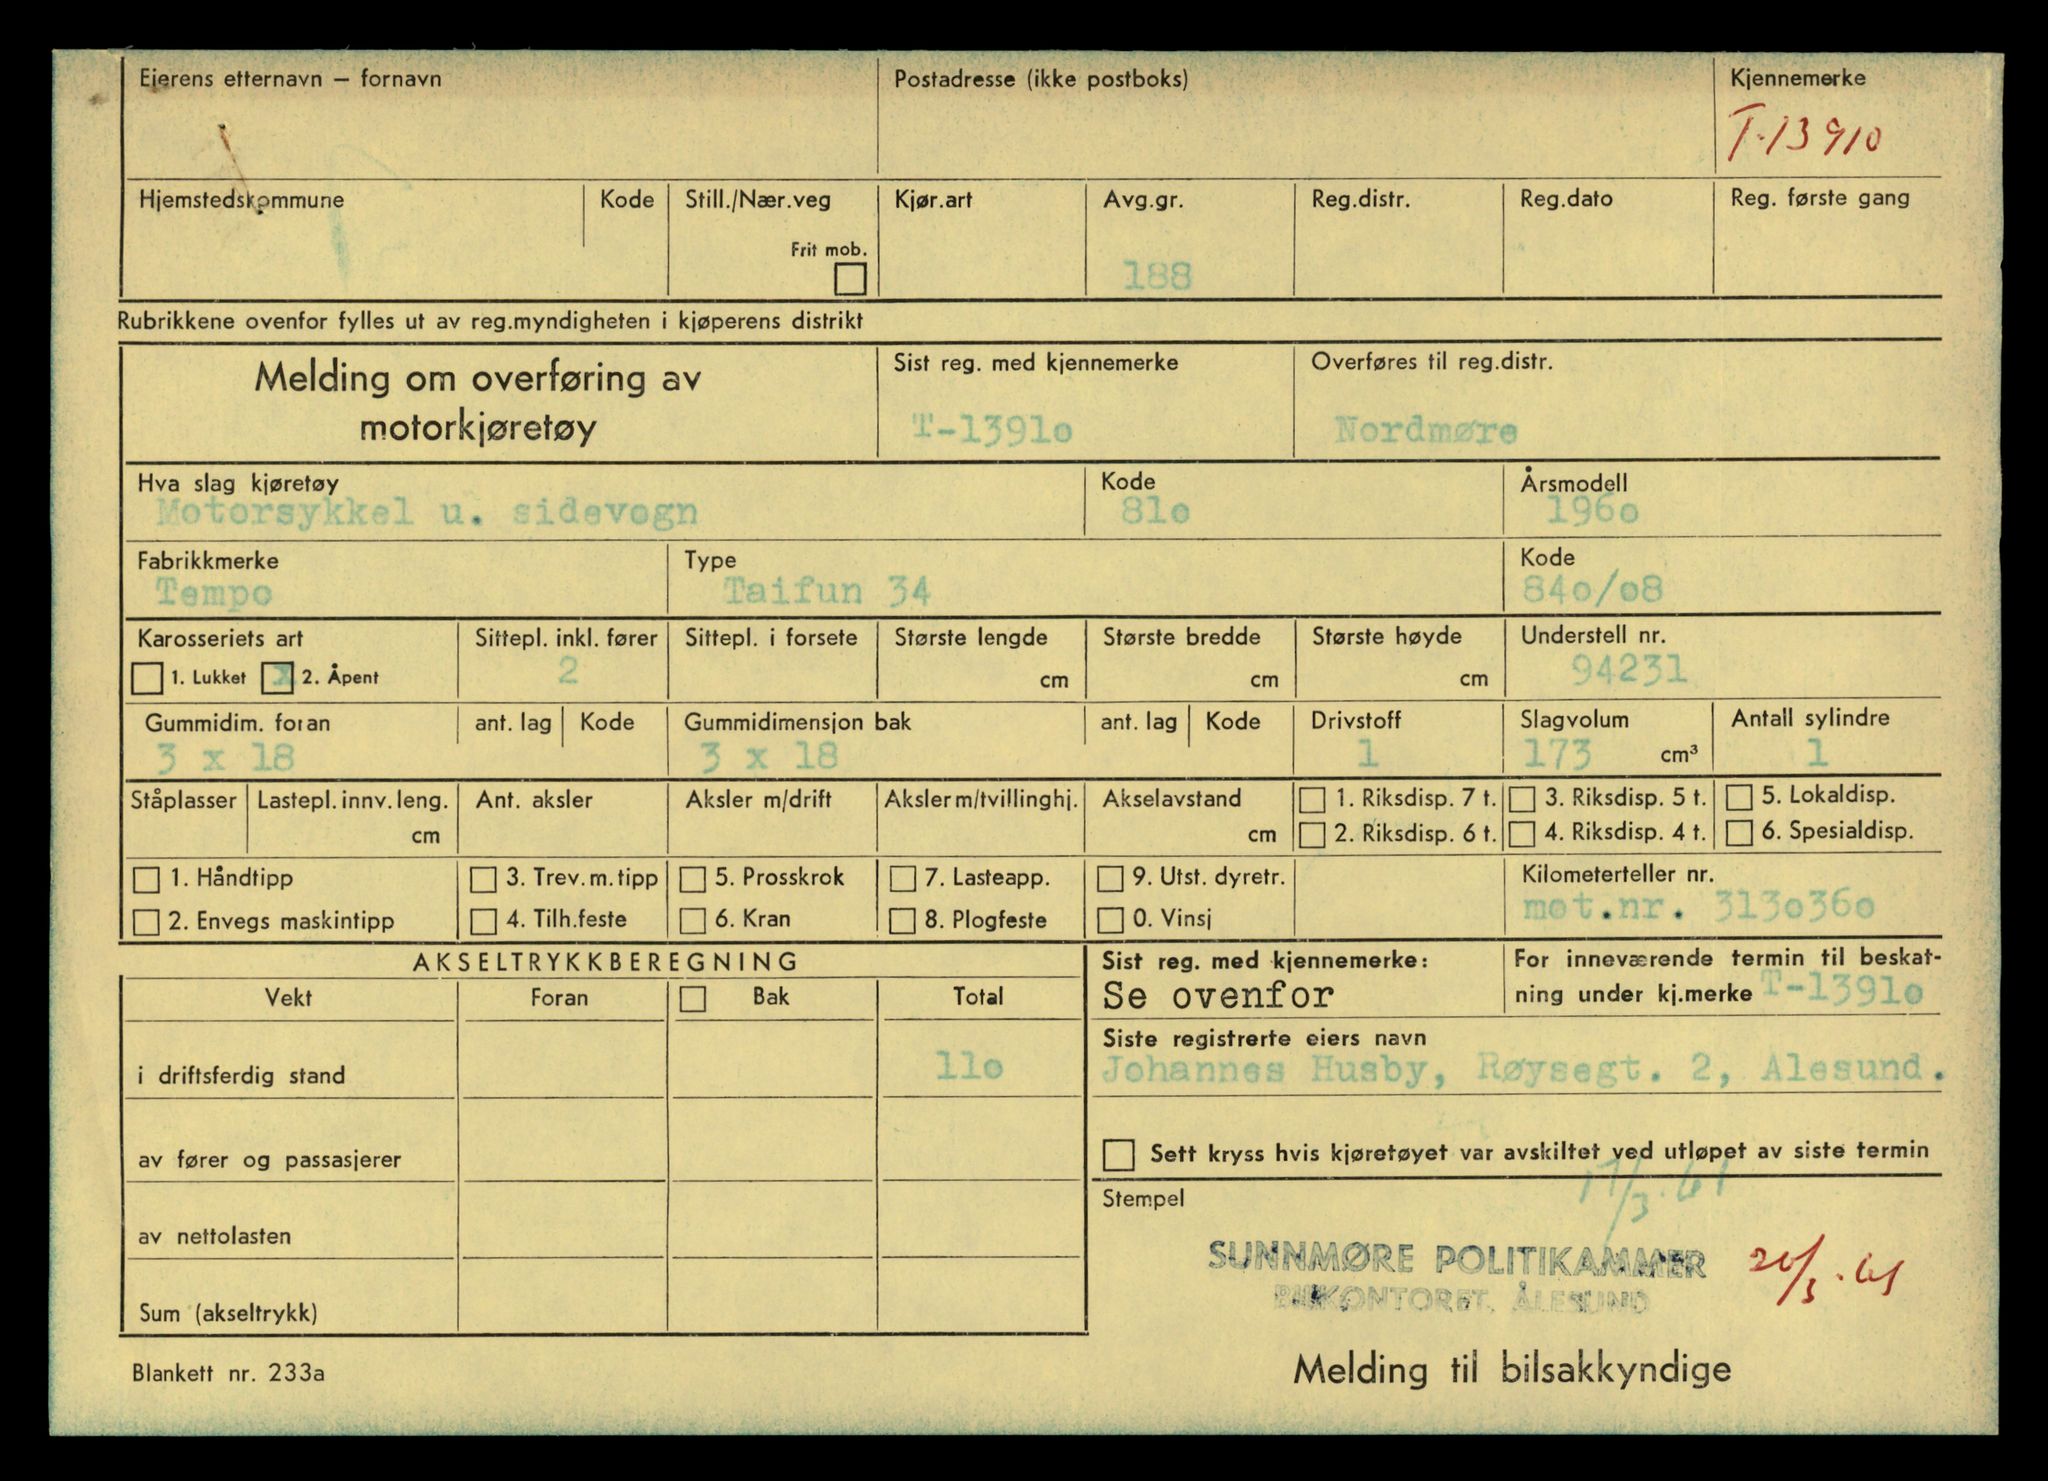 Eierens etternavn – fornavn
Postadresse (ikke postboks)
Kjennemerke
T-13910
Hjemstedskommune
Kode
Still./Nær.veg
Frit mob.
Kjør.art
Avg.gr.
188
Reg.distr.
Reg.dato
Reg. første gang
Rubrikkene ovenfor fylles ut av reg.myndigheten i kjøperens distrikt
Melding om overføring av
motorkjøretøy
Sist reg. med kjennemerke
T-1391o
Overføres til reg.distr.
Nordmøre
Hva slag kjøretøy
Motorsykkel u. sidevogn
Kode
81o
Årsmodell
196o
Fabrikkmerke
Tempo
Type
Taifun 34
Kode
84o/o8
Karosseriets art
1. Lukket x 2. Åpent
Sittepl. inkl. fører
2
Sittepl. i forsete
Største lengde
cm
Største bredde
cm
Største høyde
cm
Understell nr.
94231
Gummidim. foran
3 x 18
ant. lag
Kode
Gummidimensjon bak
3 x 18
ant. lag
Kode
Drivstoff
1
Slagvolum
173 cm³
Antall sylindre
1
Ståplasser
Lastepl. innv. leng.
cm
Ant. aksler
Aksler m/drift
Aksler m/tvillinghj.
Akselavstand
cm
1. Riksdisp. 7 t.
2. Riksdisp. 6 t.
3. Riksdisp. 5 t.
4. Riksdisp. 4 t.
5. Lokaldisp.
6. Spesialdisp.
1. Håndtipp
2. Envegs maskintipp
3. Trev. m. tipp
4. Tilh.feste
5. Prosskrok
6. Kran
7. Lasteapp.
8. Plogfeste
9. Utst. dyretr.
0. Vinsj
Kilometerteller nr.
mot.nr. 313o36o
AKSELTRYKKBEREGNING
Vekt
Foran
Bak
Total
i driftsferdig stand
11o
av fører og passasjerer
av nettolasten
Sum (akseltrykk)
Sist reg. med kjennemerke:
Se ovenfor
For inneværende termin til beskat-
ning under kj.merke T-1391o
Siste registrerte eiers navn
Johannes Husby, Røysegt. 2, Alesund.
Sett kryss hvis kjøretøyet var avskiltet ved utløpet av siste termin
17/3.61
Stempel
SUNNMØRE POLITIKAMMER
BILKONTORET, ÅLESUND
20/3.61
Blankett nr. 233a
Melding til bilsakkyndige